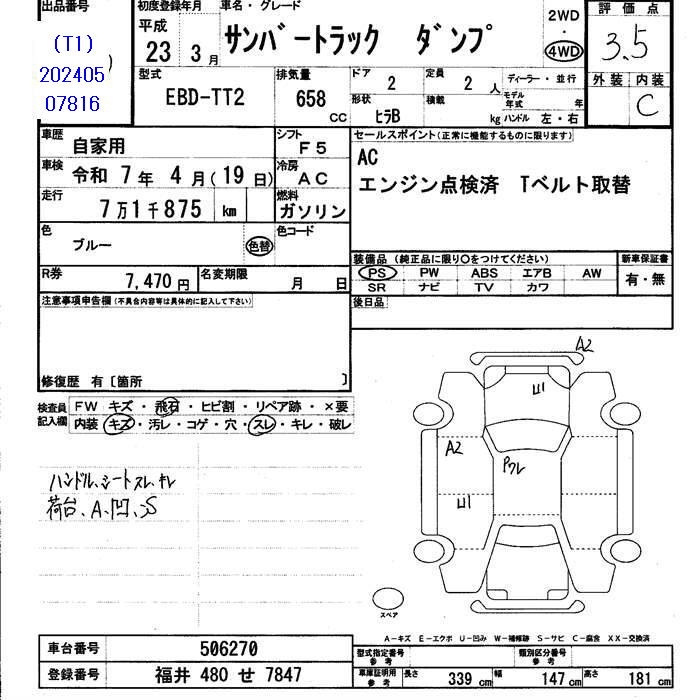 出品番号
(T1)
202405
07816
初度登録年月
平成
23 3 月
車名・グレード
サンバートラック ダンプ
2WD
・
4WD
評価点
3.5
外装 内装
C
型式
EBD-TT2
排気量
658 CC
ドア
2
定員
2 人
形状
ヒラB
積載
kg
ディーラー・並行
モデル年式 年
ハンドル 左・右
車歴
自家用
シフト
F5
車検
令和 7 年 4 月 (19 日)
冷房
AC
走行
7万1千875 km
燃料
ガソリン
色
ブルー
色替
色コード
R券
7,470 円
名変期限
月 日
セールスポイント(正常に機能するものに限ります)
AC
エンジン点検済 Tベルト取替
装備品 (純正品に限り○をつけてください)
PS PW ABS エアB AW
SR ナビ TV カワ
新車保証書
有・無
後日品
注意事項申告欄(不具合内容等は具体的に記入して下さい)
修復歴 有〔箇所 〕
検査員記入欄
FW キズ・飛石・ヒビ割・リペア跡・×要
内装 キズ・汚レ・コゲ・穴・スレ・キレ・破レ
ハンドル、シートスレ、キレ
荷台、A、凹、S
A2
U1
A2
Pクレ
U1
スペア
A-キズ E-エクボ U-凹み W-補修跡 S-サビ C-腐食 XX-交換済
車台番号
506270
登録番号
福井 480 せ 7847
型式指定番号
参考
類別区分番号
参考
車庫証明用
参考
長さ 339 cm
幅 147 cm
高さ 181 cm